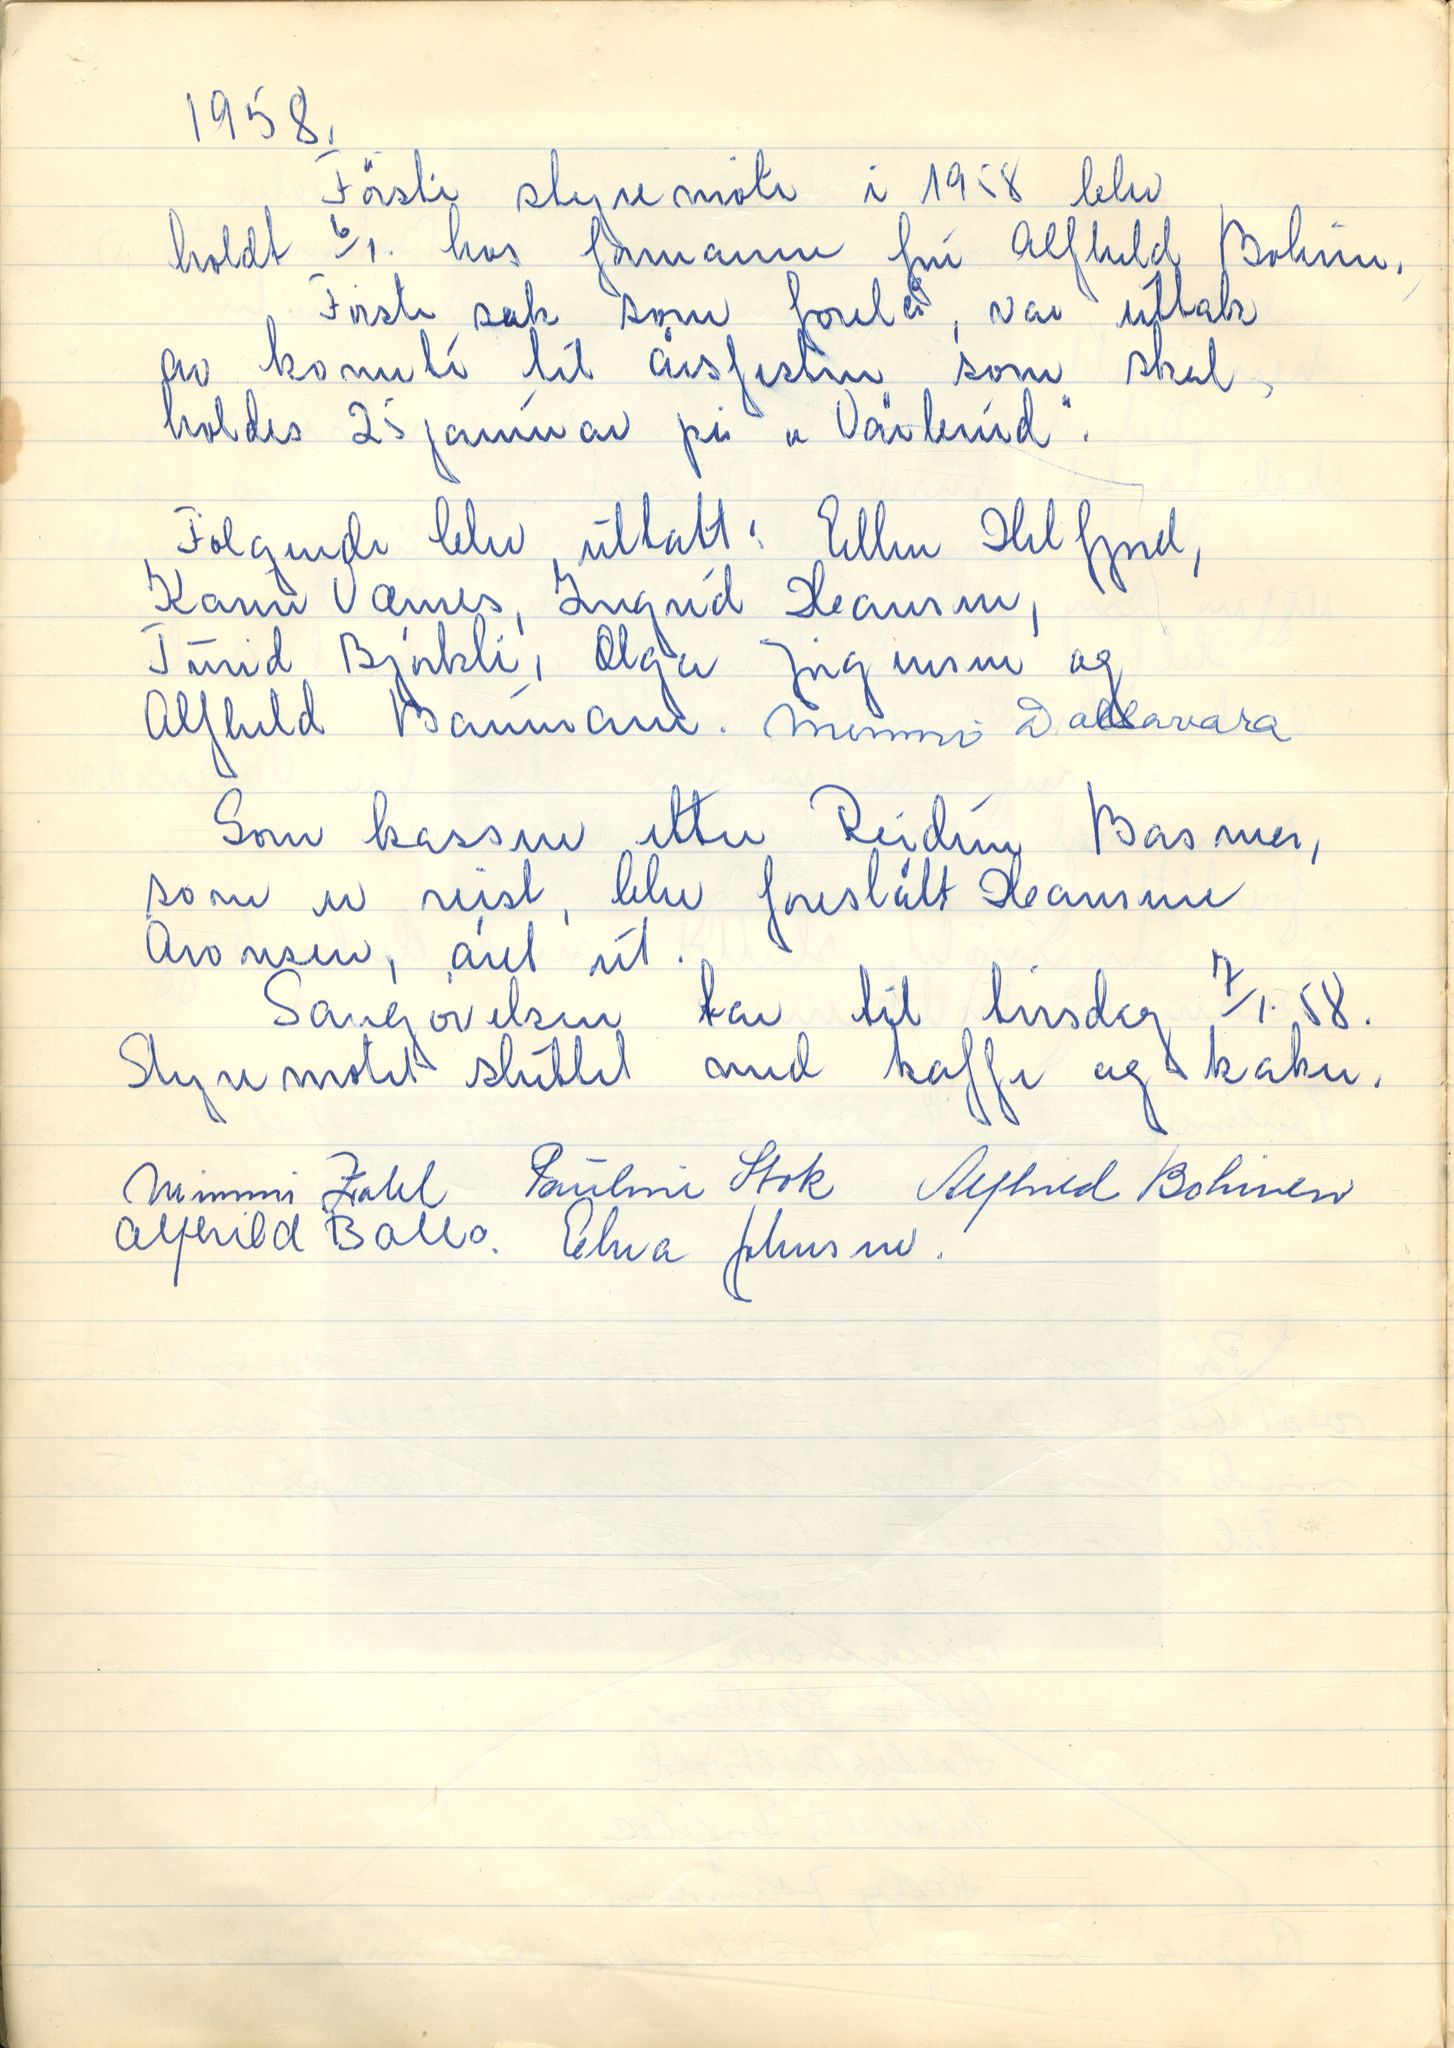 1958.
Förste styremöte i 1958 blev
holdt 6/1. hos formannen frú Alfhild Bohinen.
Förste sak som forelå, var úttak
av komité til årsfesten som skal
holdes 25 janúar på "Vårbrúd".
Følgende blev úttatt: Ellen Helfjord,
Karin Værnes, Ingrid Hansen,
Túrid Björkli, Olga Jörgensen og
Alfhild Baúmann. Mimmi Dallavara
Som kasserer etter Reidún Basmer,
som er reist, blev foreslått Hansine
Aronsen, året út.
Sangövelsen tar til tirsdag 7/1. 58.
Styremötet slúttet med kaffe og kaker.
Mimmi Zahl Paúline Stok Alfhild Bohinen
Alfhild Ballo. Ebba Johnsen.